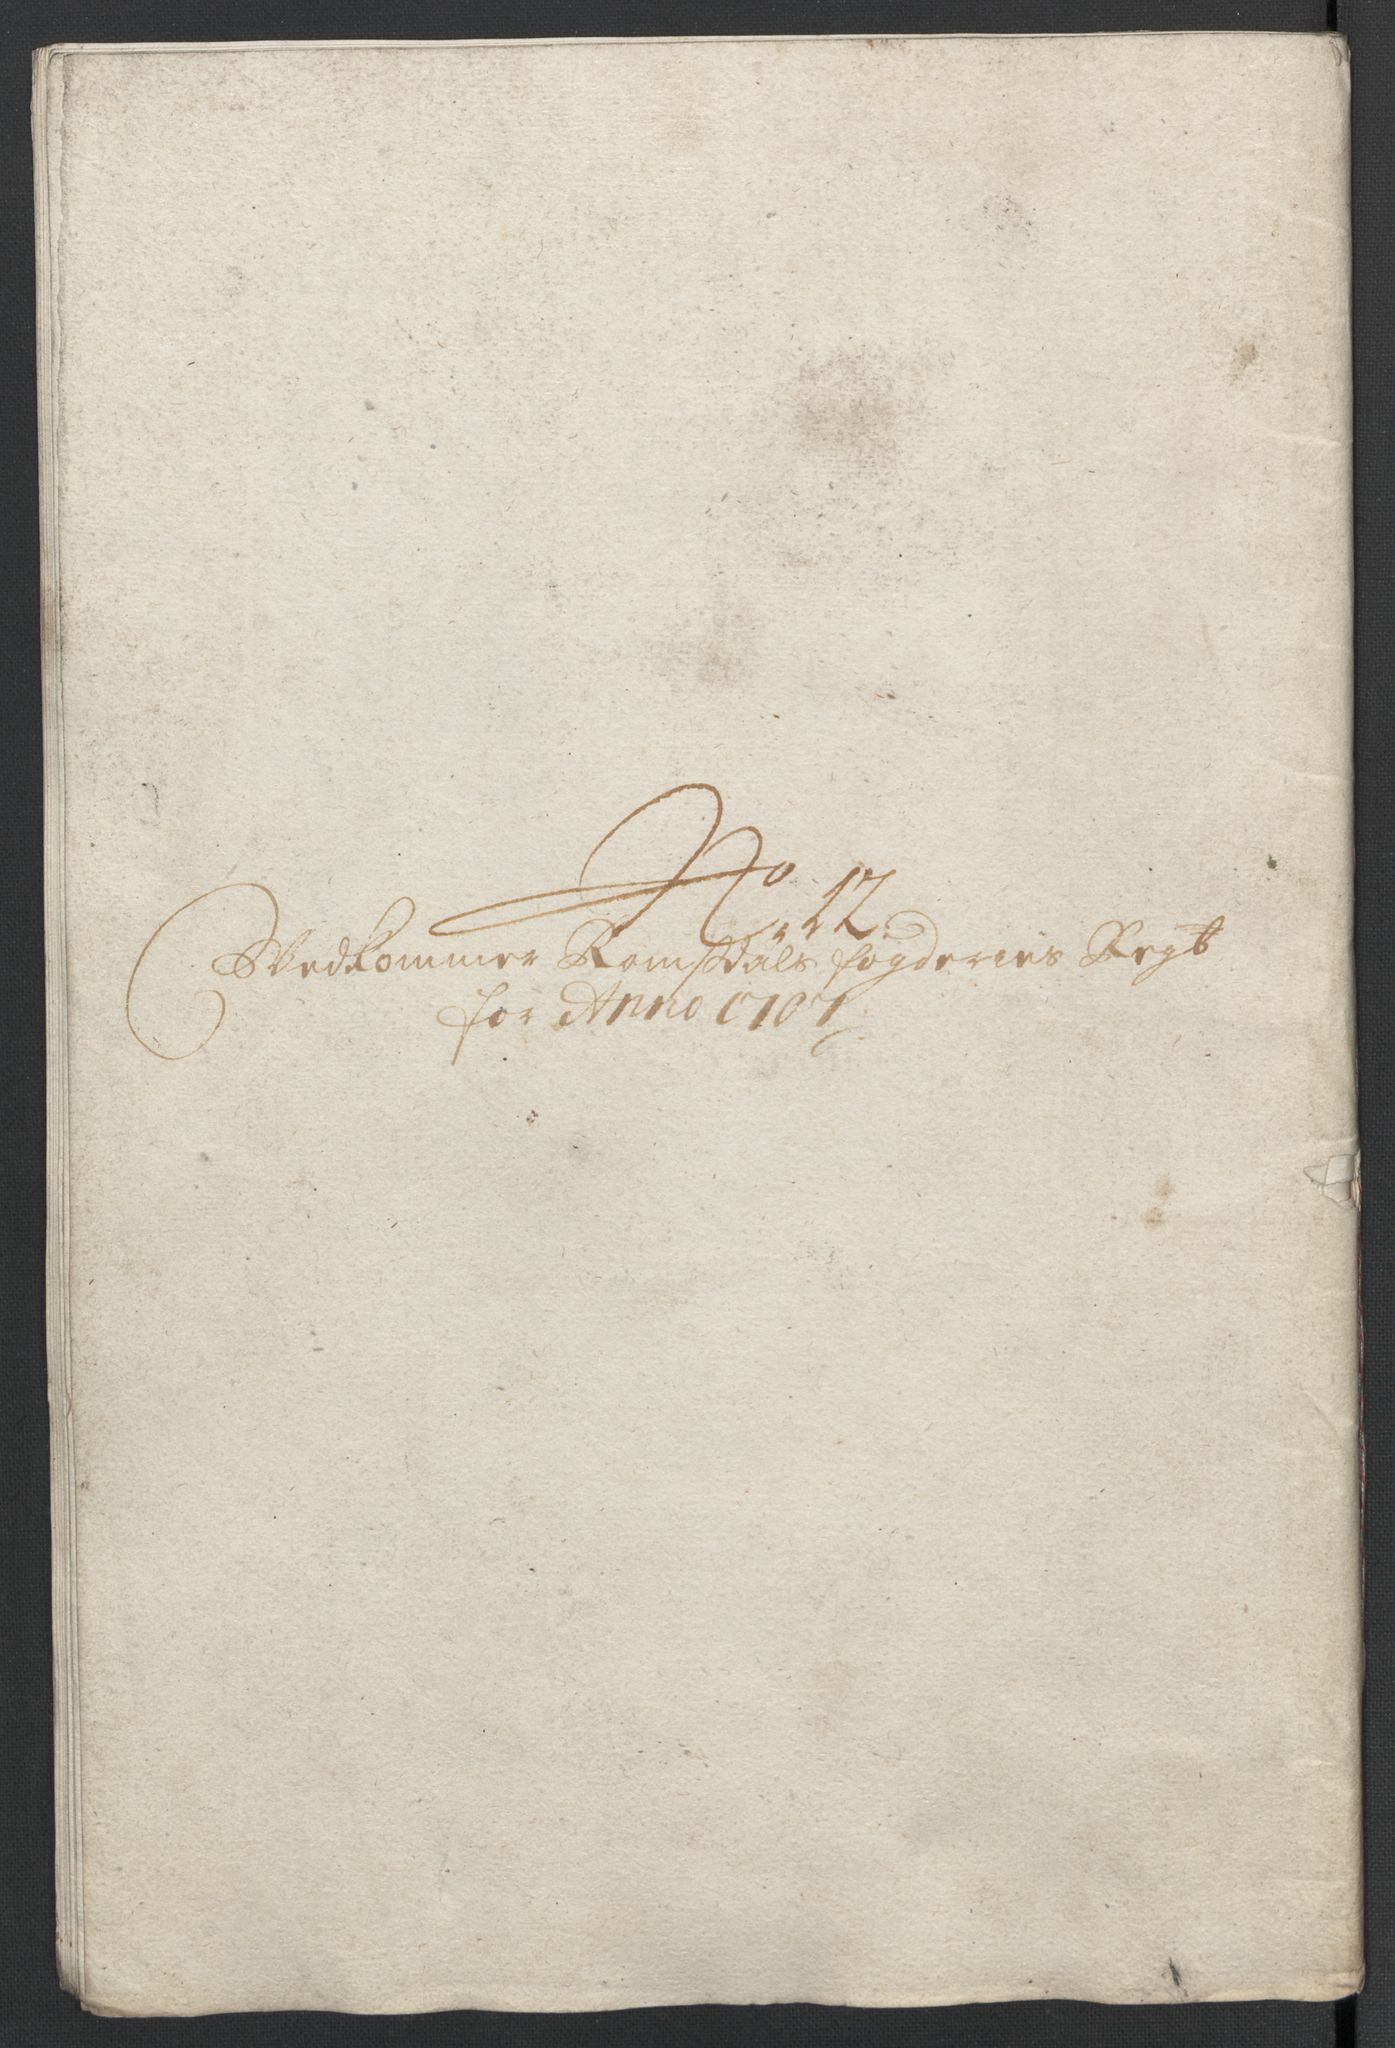 No 12.
Vedkommer Romsdals fogderies Regb
for Anno 1707